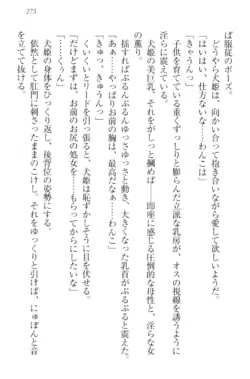 273
ば服従のポーズ。
どうやら犬姫は、向かい合って抱き合いながら愛して欲しいようだ。
「はいはい、仕方ないな……わんこは」
「きゃうんっ」
子供を育てている重くずっしりと膨らんだ立派な乳房が、オスの視線を誘うように
淫らに震えている。
犬姫の美巨乳、それをがしっと掴めば――即座に感じる圧倒的な母性と、淫らな女
の薫り。
揺すればぶるんぶるんゆっさゆっさと動き、大きくなった乳首がぷるぷると震えた。
「なぁ……やっぱりお前の胸は、
「きゅっ、きゅうんっ」
「だけどまずは、お前のお尻の処女を……もらってからにしたいな」
くいくいとリードを引っ張ると、犬姫は恥ずかしそうに目を伏せる。
「……くぅん」
犬姫の身体をひっくり返し、後背位の姿勢にする。
依然として肛門に刺さったままのこけし。それをゆっくりと引けば、にゅぽんと音
を立てて抜ける。